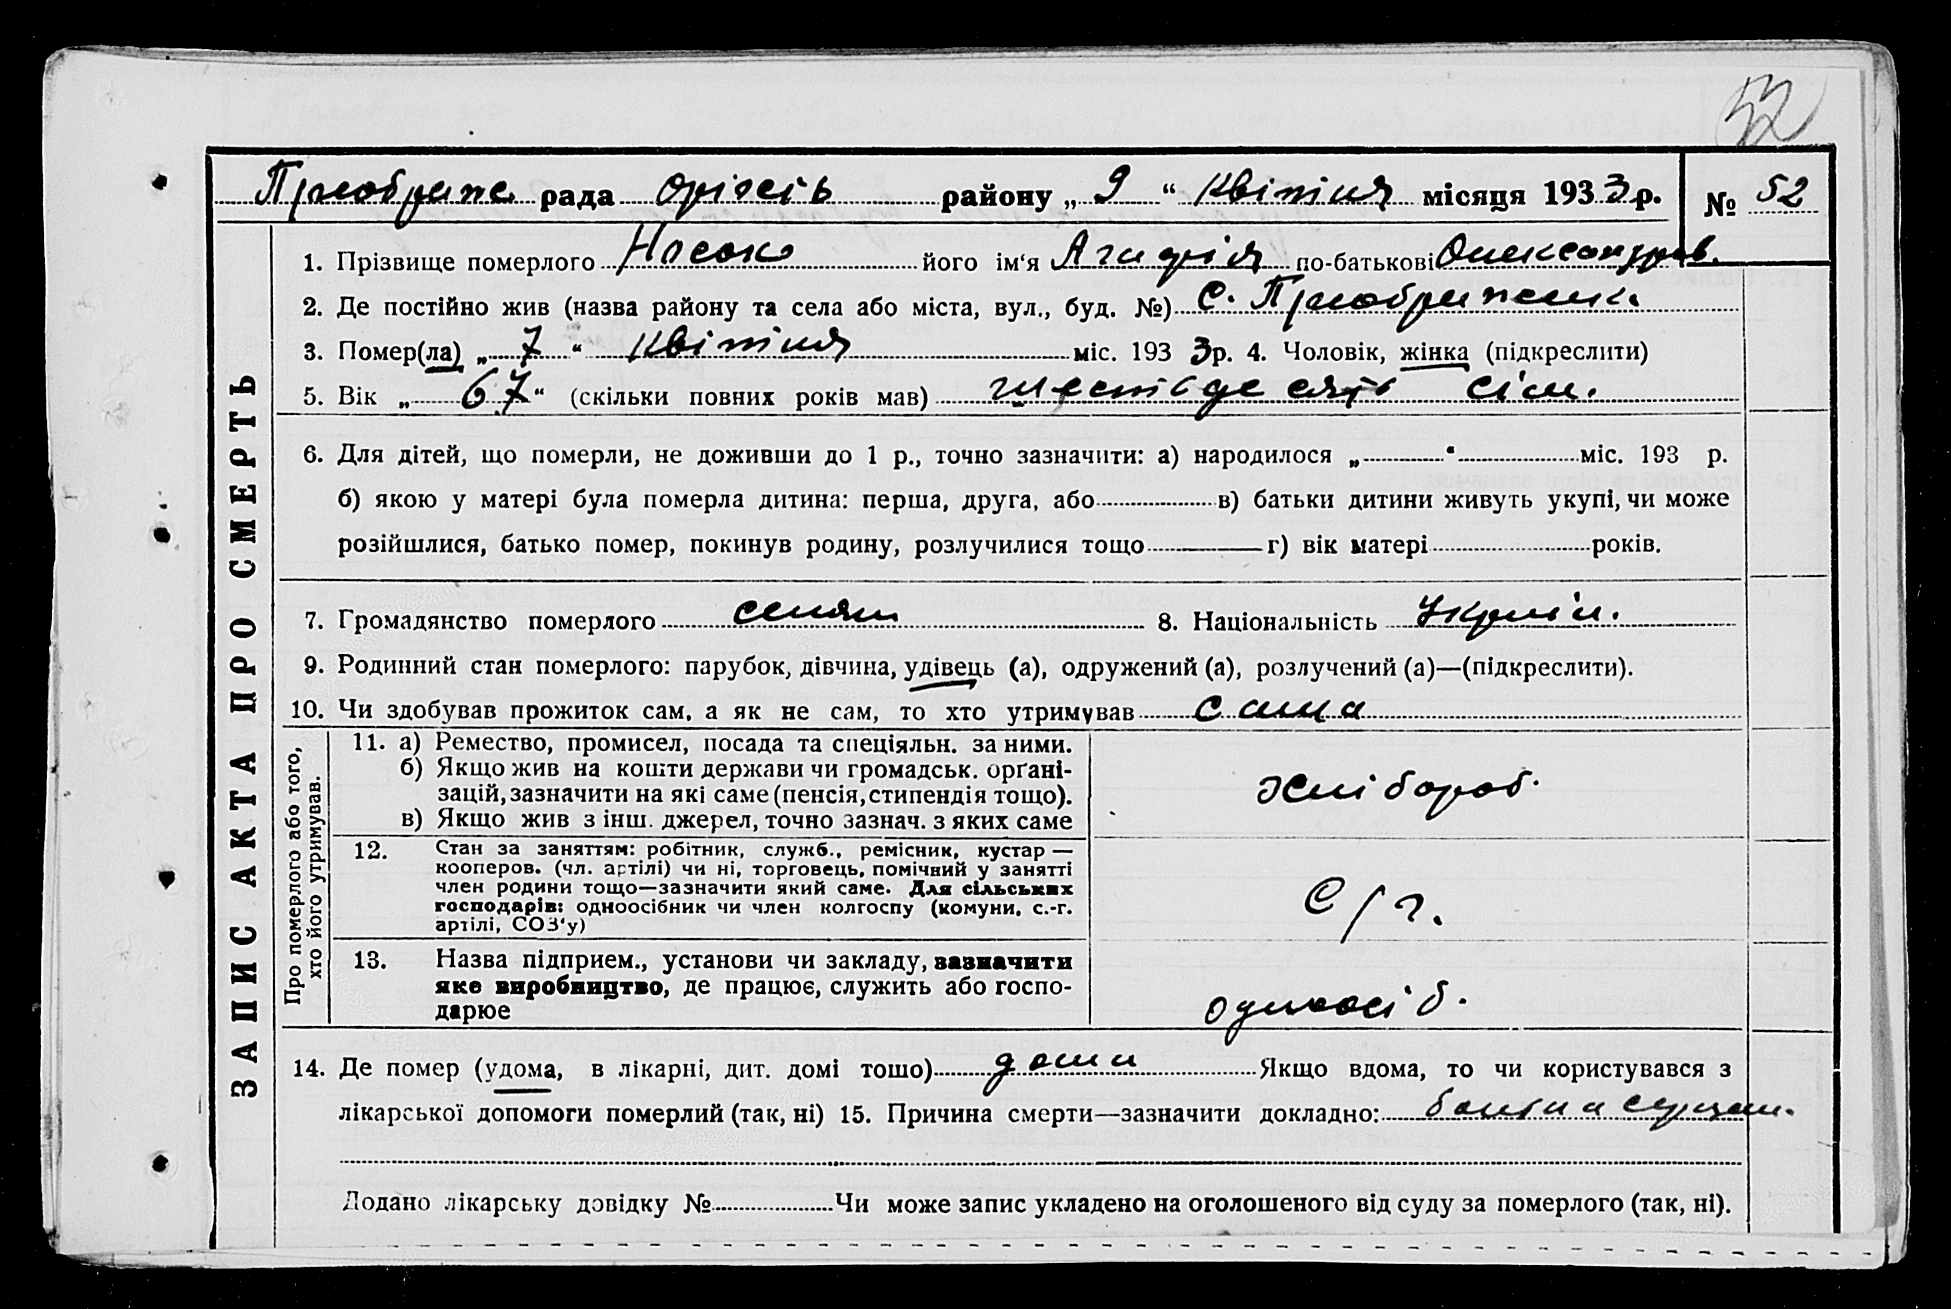 52
Преображе. рада Оріхів району „ 9 “ Квітня місяця 1933 р. № 52
ЗАПИС АКТА ПРО СМЕРТЬ
1. Прізвище померлого Носак його ім‘я по-батькові Олександров.
2. Де постійно жив (назва району та села або міста, вул., буд. №) с. Преображенк.
3. Помер(ла) „ 7 “ Квітня міс. 193 3р. 4. Чоловік, жінка (підкреслити)
5. Вік „ 67 “ (скільки повних років мав) шестьдесять сім.
6. Для дітей, що померли, не доживши до 1 р., точно зазначити: а) народилося „ “ міс. 193 р.
б) якою у матері була померла дитина: перша, друга, або в) батьки дитини живуть укупі, чи може
розійшлися, батько помер, покинув родину, розлучилися тощо г) вік матері років.
7. Громадянство померлого селян 8. Національність Україн.
9. Родинний стан померлого: парубок, дівчина, удівець (а), одружений (а), розлучений (а)—(підкреслити).
10. Чи здобував прожиток сам, а як не сам, то хто утримував сама
Про померлого або того,
хто його утримував.
11. а) Ремество, промисел, посада та спеціяльн. за ними.
б) Якщо жив на кошти держави чи громадськ. орґані-
зацій, зазначити на які саме (пенсія, стипендія тощо).
в) Якщо жив з інш. джерел, точно зазнач. з яких саме
Хлібороб.
12. Стан за заняттям: робітник, служб., ремісник, кустар —
кооперов. (чл. артілі) чи ні, торговець, помічний у занятті
член родини тощо—зазначити який саме. Для сільських
господарів: одноосібник чи член колгоспу (комуни, с.-г.
артілі, СОЗ‘у)
С/г.
13. Назва підприєм., установи чи закладу, зазначити
яке виробництво, де працює, служить або госпо-
дарює
одноосіб.
14. Де помер (удома, в лікарні, дит. домі тощо) дома Якщо вдома, то чи користувався з
лікарської допомоги померлий (так, ні) 15. Причина смерти—зазначити докладно:
Додано лікарську довідку № Чи може запис укладено на оголошеного від суду за померлого (так, ні).